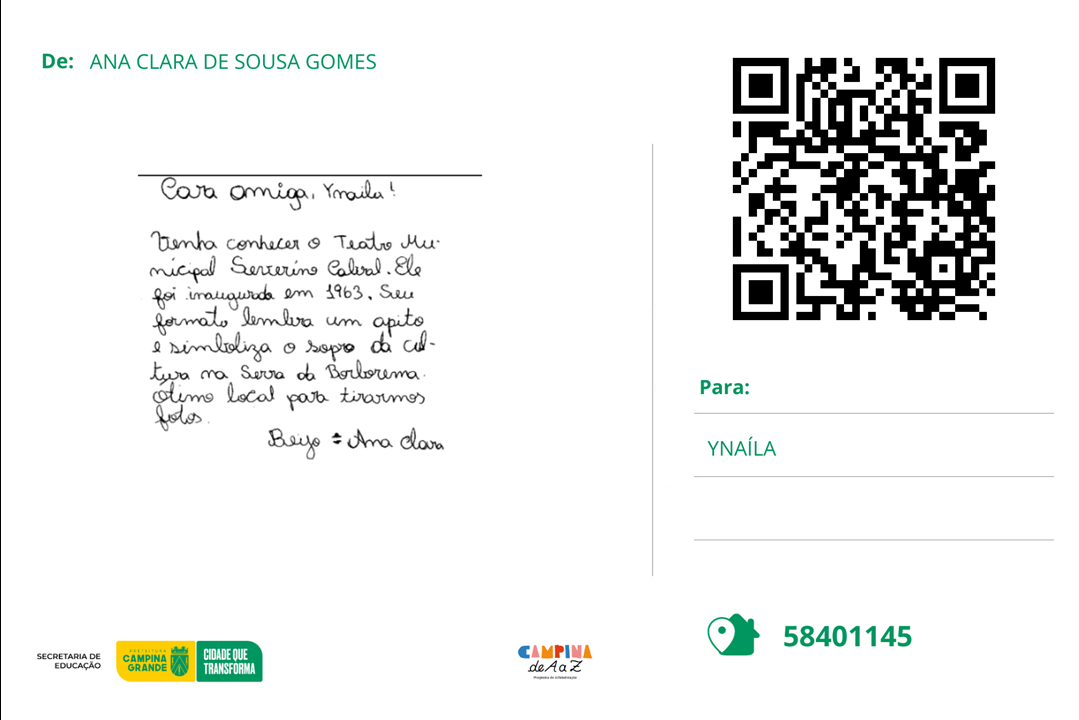 De: ANA CLARA DE SOUSA GOMES
Cara amiga, Ynaila!
Venha conhecer o Teatro Mu-
nicipal Severino Cabral. Ele
foi inaugurada em 1963. Seu
formato lembra um apito
e simboliza o sopro da cul-
tura na Serra da Borborema.
Ótimo local para tirarmos
fotos.
Beijo = Ana Clara
Para:
YNAÍLA
58401145
SECRETARIA DE
EDUCAÇÃO
PREFEITURA
CAMPINA
GRANDE
CIDADE QUE
TRANSFORMA
CAMPINA
de A a Z
Programa de Alfabetização